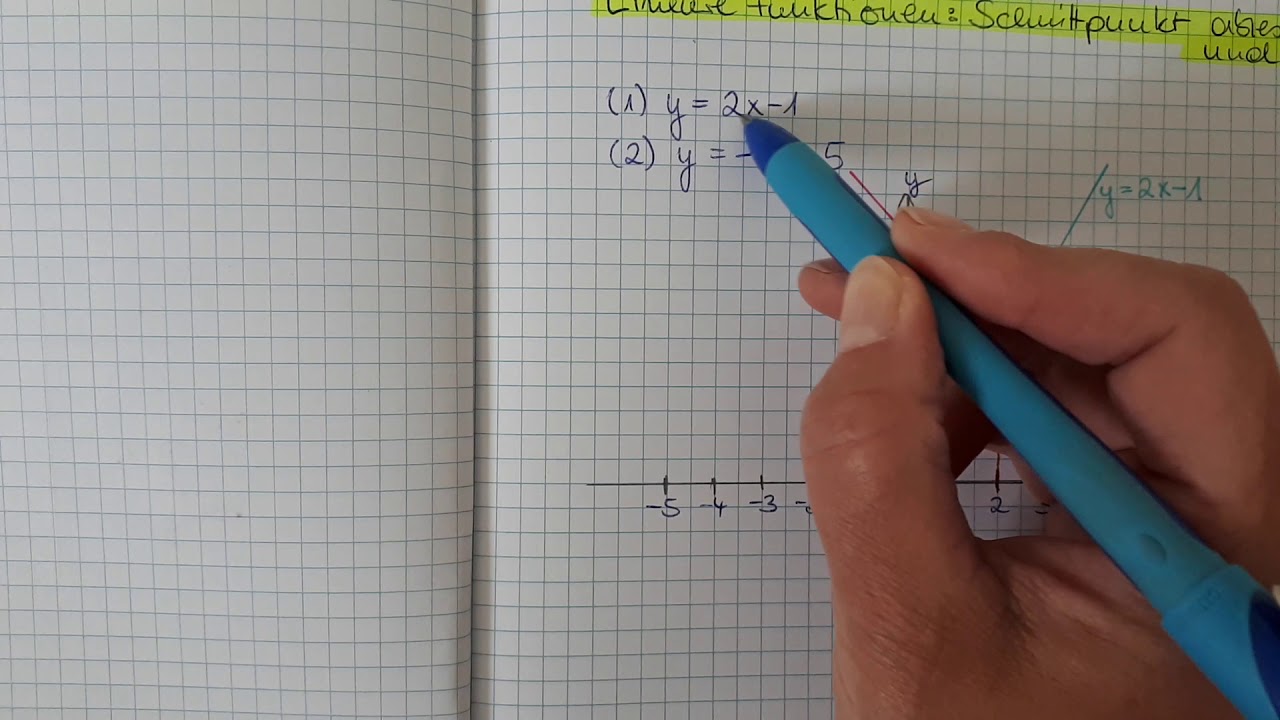 Lineare Funktionen: Schnittpunkt
und
(1) y = 2x-1
(2) y = - 5
y
y=2x-1
-5 -4 -3 2